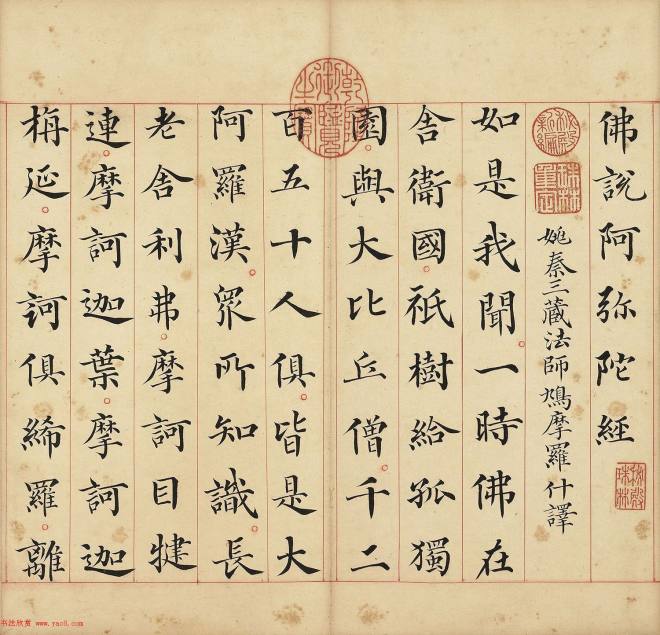 佛說阿弥陀經
姚秦三藏法師鳩摩羅什譯
如是我聞。一時佛在
舍衛國。祇樹給孤獨
園。與大比丘僧。千二
百五十人俱。皆是大
阿羅漢。眾所知識。長
老舍利弗。摩訶目犍
連。摩訶迦葉。摩訶迦
栴延。摩訶俱絺羅。離
书法欣赏 www.yac8.com